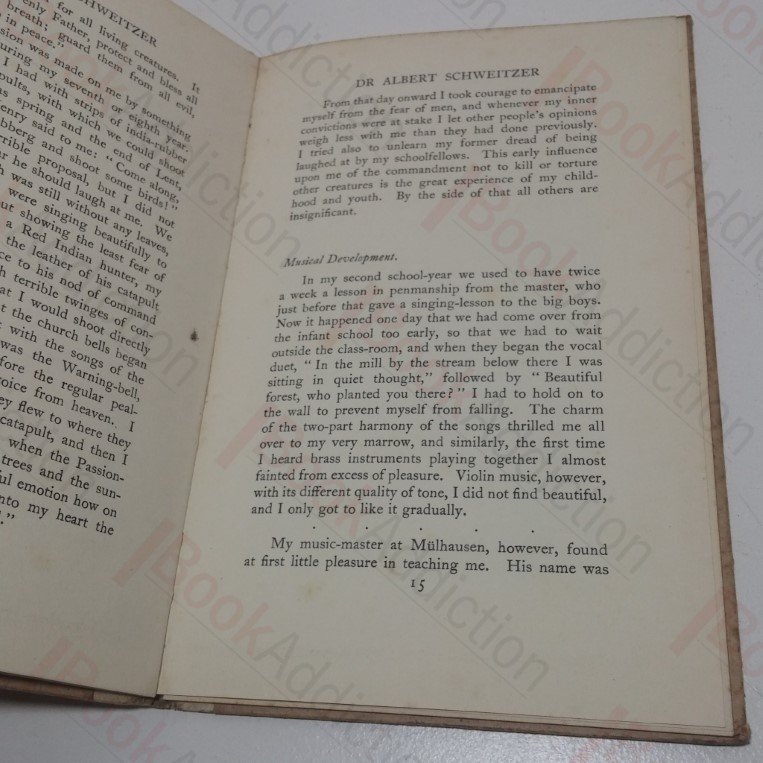 SCHWEITZER
for all living creatures. It
enly Father, protect and bless all
breath; guard them from all evil,
in peace."
sion was made on me by something
uring my seventh or eighth year.
I had with strips of india-rubber
pults, with which we could shoot
as spring and the end of Lent,
enry said to me: "Come along,
bberg and shoot some birds!"
rrible proposal, but I did not
ar he should laugh at me. We
h was still without any leaves,
were singing beautifully to
out showing the least fear of
a Red Indian hunter, my
the leather of his catapult
ce to his nod of command
h terrible twinges of con-
at I would shoot directly
t the church bells began
with the songs of the
was the Warning-bell,
fore the regular peal-
oice from heaven. I
ey flew to where they
catapult, and then I
when the Passion-
trees and the sun-
ful emotion how on
into my heart the
."
DR ALBERT SCHWEITZER
From that day onward I took courage to emancipate
myself from the fear of men, and whenever my inner
convictions were at stake I let other people's opinions
weigh less with me than they had done previously.
I tried also to unlearn my former dread of being
laughed at by my schoolfellows. This early influence
upon me of the commandment not to kill or torture
other creatures is the great experience of my child-
hood and youth. By the side of that all others are
insignificant.
Musical Development.
In my second school-year we used to have twice
a week a lesson in penmanship from the master, who
just before that gave a singing-lesson to the big boys.
Now it happened one day that we had come over from
the infant school too early, so that we had to wait
outside the class-room, and when they began the vocal
duet, "In the mill by the stream below there I was
sitting in quiet thought," followed by "Beautiful
forest, who planted you there?" I had to hold on to
the wall to prevent myself from falling. The charm
of the two-part harmony of the songs thrilled me all
over to my very marrow, and similarly, the first time
I heard brass instruments playing together I almost
fainted from excess of pleasure. Violin music, however,
with its different quality of tone, I did not find beautiful,
and I only got to like it gradually.
. . . . .
My music-master at Mülhausen, however, found
at first little pleasure in teaching me. His name was
15
BookAddiction